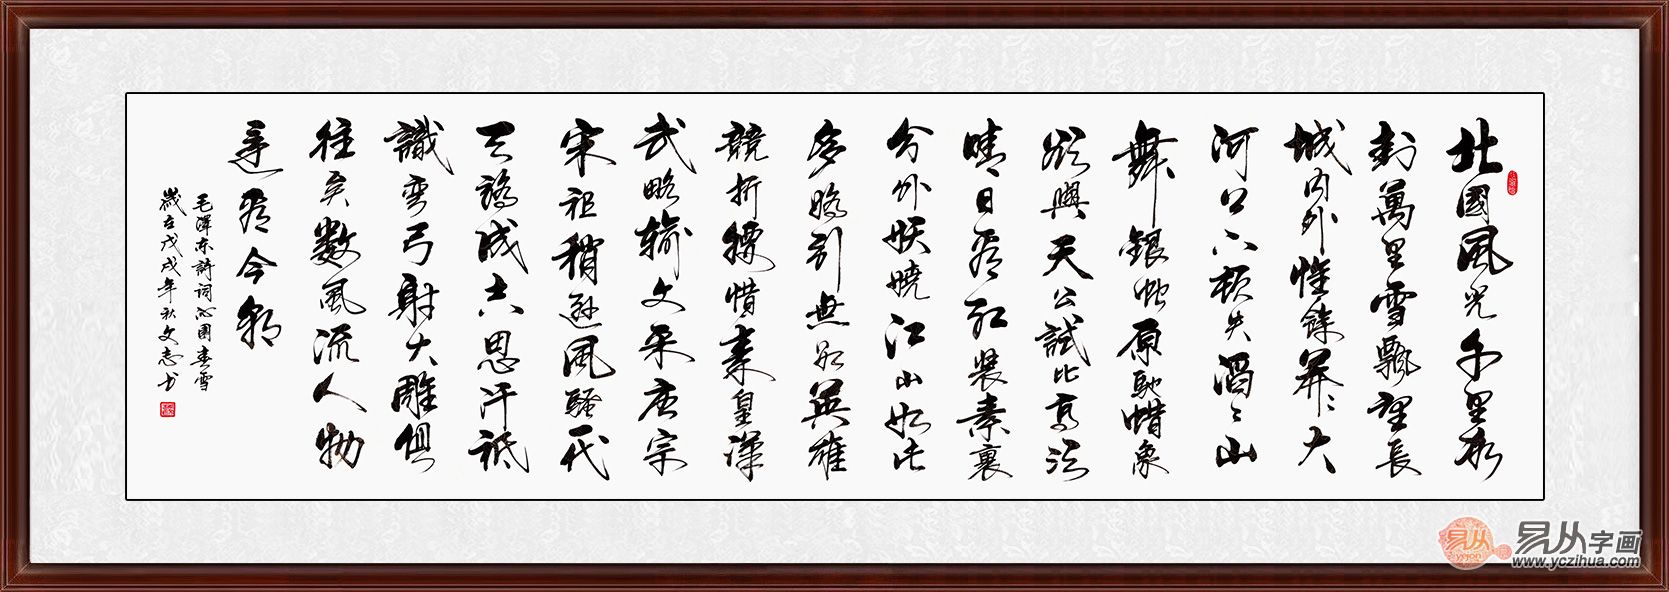 北國風光千里冰
封萬里雪飄望長
城内外惟餘莽〻大
河口下頓失滔〻山
舞銀蛇原馳蜡象
欲與天公試比高須
晴日看紅裝素裹
分外妖嬈江山如此
多嬌引無數英雄
競折腰惜秦皇漢
武略输文采唐宗
宋祖稍遜風騷一代
天驕成吉思汗祗
識彎弓射大雕俱
往矣數風流人物
還看今朝
毛澤東詩詞沁園春雪
歲在戊戌年秋文志书
易从
yczihua.com
易从字画
www.yczihua.com